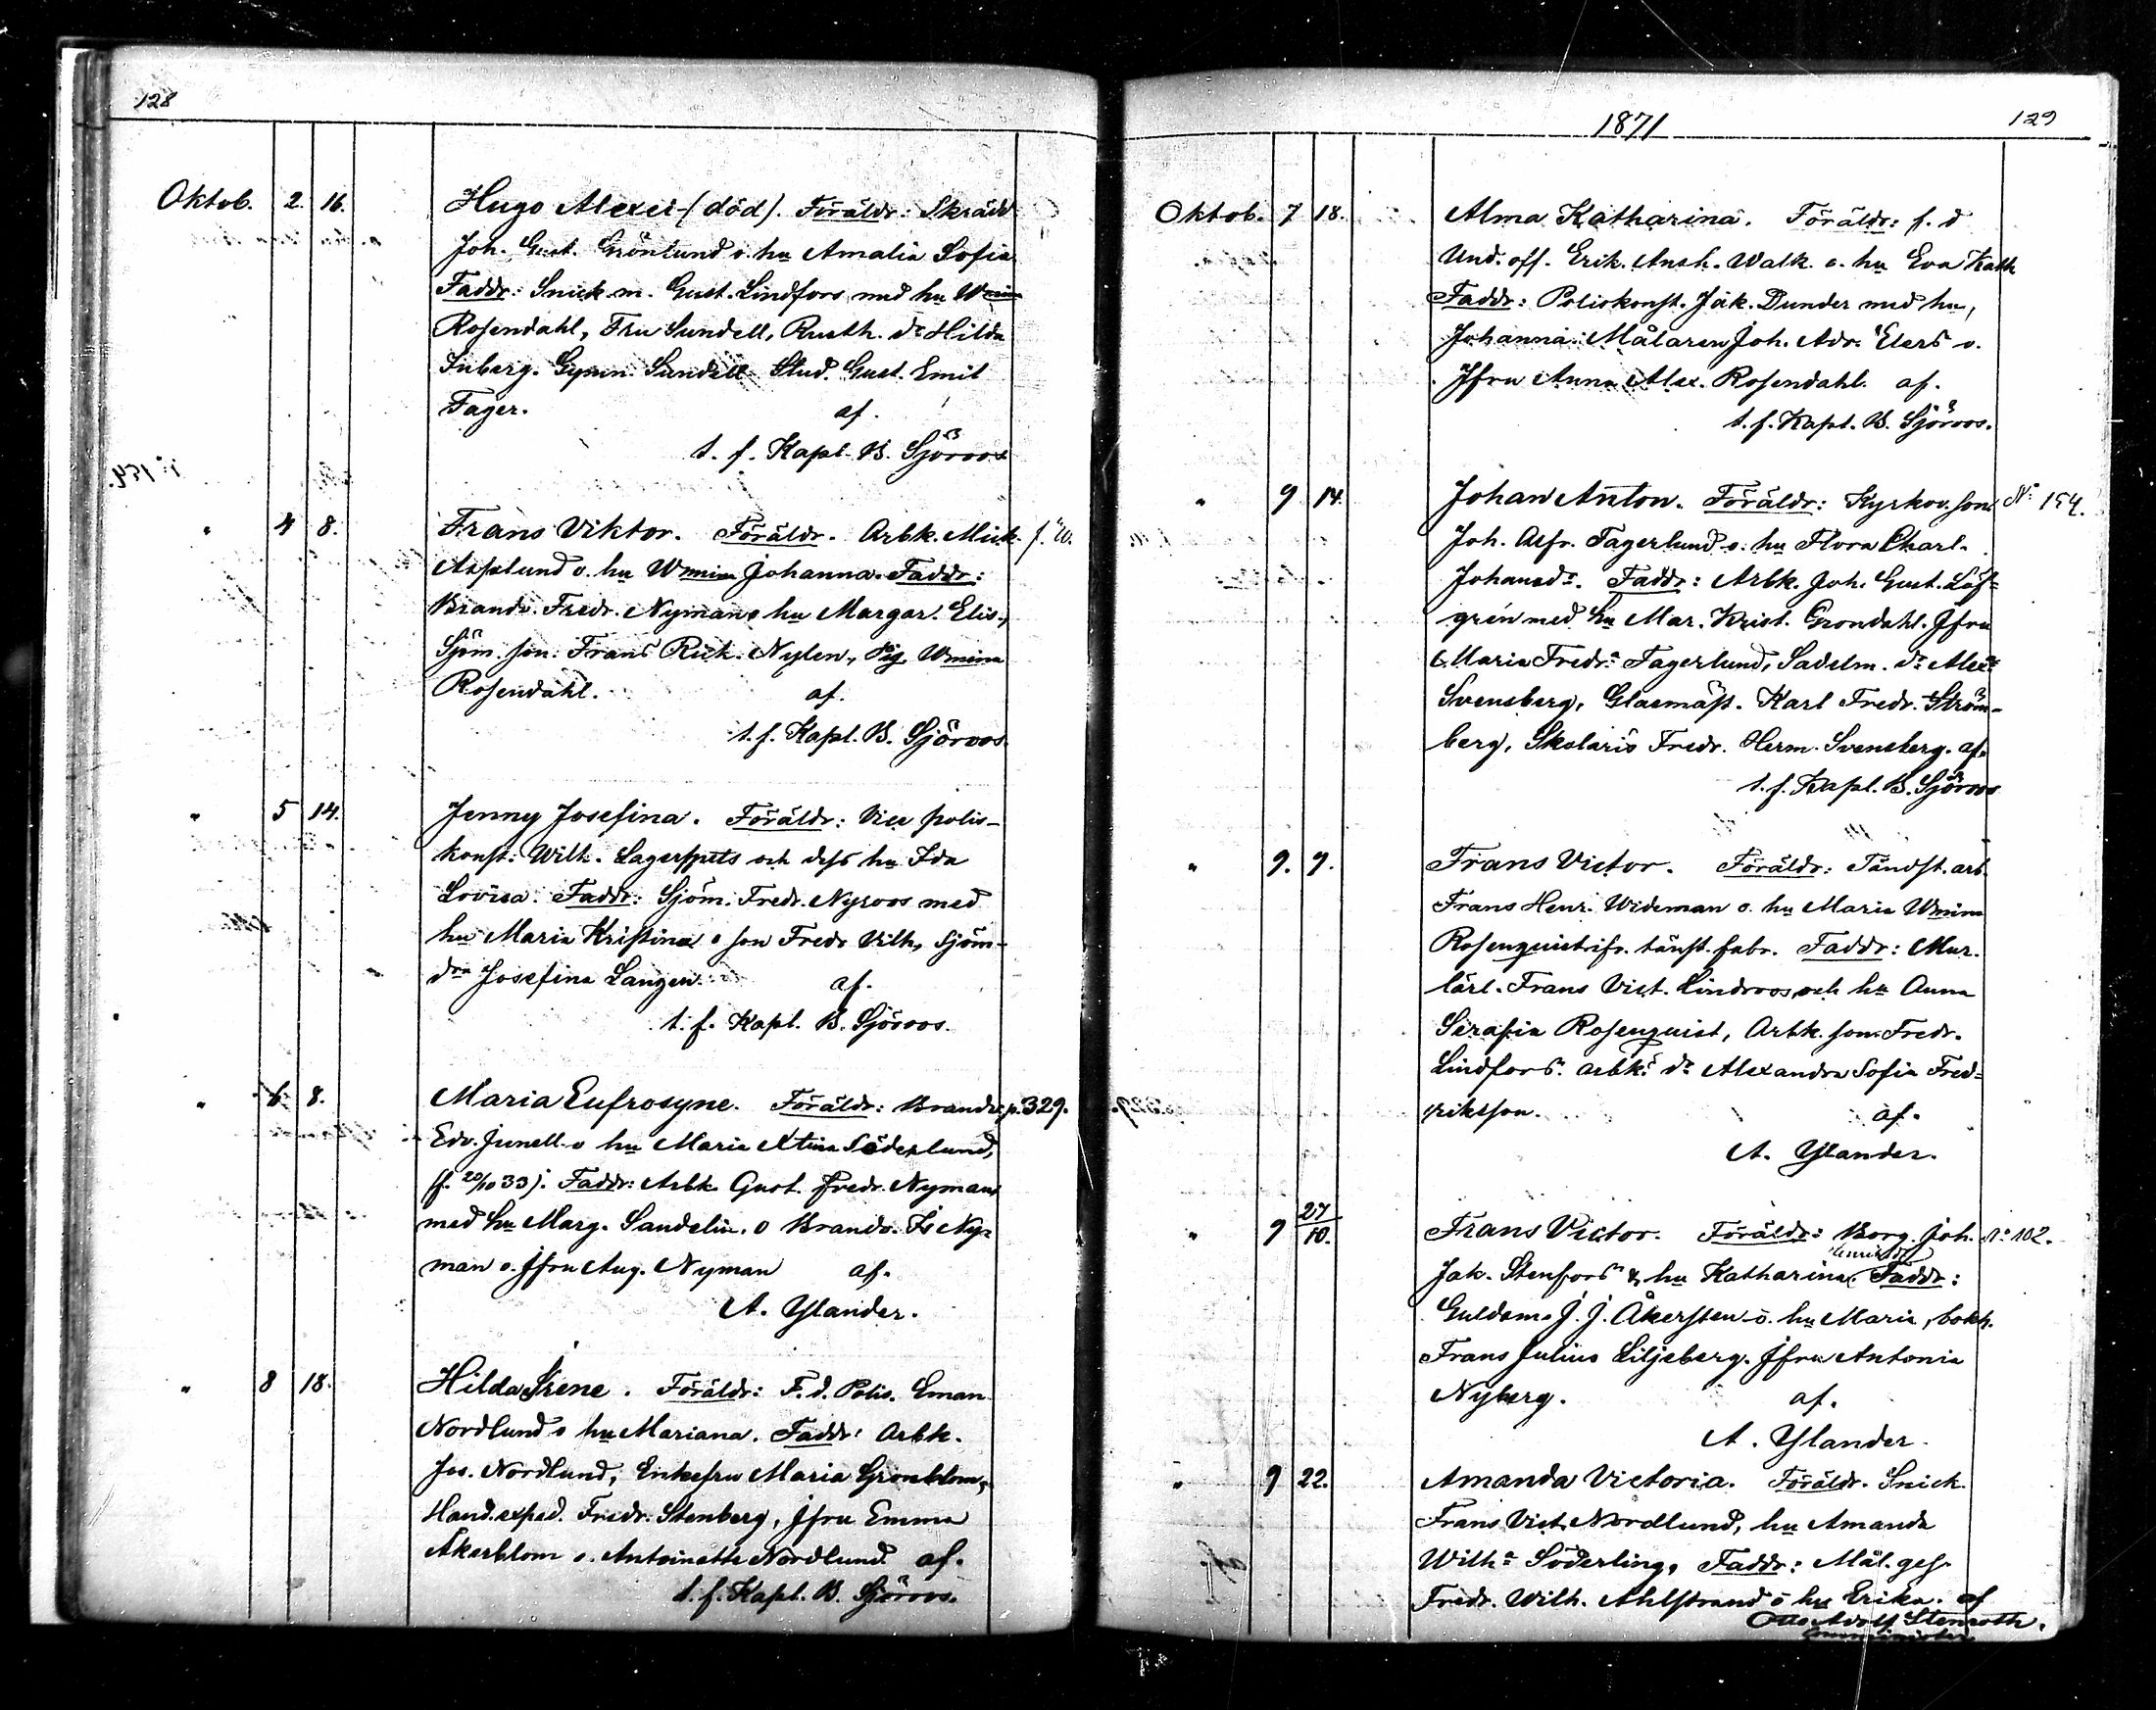 128
Oktob. 2. 16. Hugo Alexei (död). Föräldr: Skrädd
Joh. Gust. Grönlund o. hu Amalia Sofia
Faddr: Snick. m. Gust. Lindfors med hu Wmina
Rosendahl, Fru Sundell, Rusth. dr Hilda
Inberg. Gymn. Sundell Stud. Gust. Emil
Fager. af.
t. f. Kapl. B. Sjöroos
" 4 8. Frans Viktor. Föräldr. Arbk. Mick. f. W.
Asplund o. hu Wmina Johanna. Faddr:
Brandv. Fredr. Nyman o hu Margar. Elis.,
Sjöm. son. Frans Rick. Nylen, Pig. Wmina
Rosendahl. af.
t. f. Kapl. B. Sjöroos.
" 5 14. Jenny Josefina. Föräldr: Vice polis-
konst: Wilh. Lagerspets och dess hu Ida
Lovisa. Faddr: Sjöm. Fredr. Nyroos med
hu Maria Kristina o son Fredr Vilh, Sjöm-
dra Josefina Langen. af.
t. f. Kapl. B. Sjöroos.
" 6. 8. Maria Eufrosyne. Föräldr: Brandv. p. 329.
Edv. Junell o hu Maria Xtina Söderlund,
(f. 20/10 33). Faddr: Arbk Gust. Fredr. Nyman
med hu Marg. Sandelin. o Brandv. Fr Ny-
man o. jfru Aug. Nyman af.
A. Ylander.
" 8 18. Hilda Irene. Föräldr: F. d. Polis. Eman
Nordlund o hu Mariana. Faddr: Arbk.
Jos. Nordlund, Enkefru Maria Grönblom,
Hand. exped. Fredr. Stenberg, jfru Emma
Åkerblom o. Antoinette Nordlund. af.
t. f. Kapl. B. Sjöroos.
1871 129
Oktob. 7 18. Alma Katharina. Föräldr: f. d
Und. off. Erik. Walk. o. hu Eva Kath
Faddr: Poliskonst. Jak. Dunder med hu,
Johanna. Målaren Joh. Adr. Elers o.
Jfru Anna Alex. Rosendahl. af.
t. f. Kapl. B. Sjöroos.
" 9 14. Johan Anton. Föräldr: Kyrkov. son No 154.
Joh. Alfr. Fagerlund o. hu Flora Charl.
Johansdr. Faddr: Arbk. Joh. Gust. Löf-
grén med hu Mar. Krist. Grondahl. Jfru
Maria Fredr: Fagerlund, Sadelm. dr Alexa
Svensberg, Glasmäst. Karl Fredr. Ström-
berg, Skolaris Fredr. Herm. Svensberg. af.
t. f. Kapl. B. Sjöroos
" 9. 9. Frans Victor. Föräldr: Tändst. arb.
Frans Henr. Wideman o. hu Maria Wmina
Rosenquist ifr. tänst. fabr. Faddr: Mur.
lärl. Frans Vict. Lindroos och hu Anna
Serafia Rosenquist, Arbk. son Fredr.
Lindfors. arbk: dr Alexandra Sofia Fred-
riksson. af.
A. Ylander.
" 9 27/10. Frans Victor. Föräldr: Borg. Joh. No 102.
Jak. Stenfors & hu Katharina Henriksdr Faddr:
Guldsm. J. J. Åkersten o. hu Maria, bokh.
Frans Julius Liljeberg. Jfru Antonia
Nyberg. af.
A. Ylander.
" 9 22. Amanda Victoria. Föräldr. Snick.
Frans Vict. Nordlund, hu Amanda
Wilha Söderling, Faddr: Mål. ges.
Fredr. Wilh. Ahlstrand o hu Erika. af
Otto Adolf Stenroth.